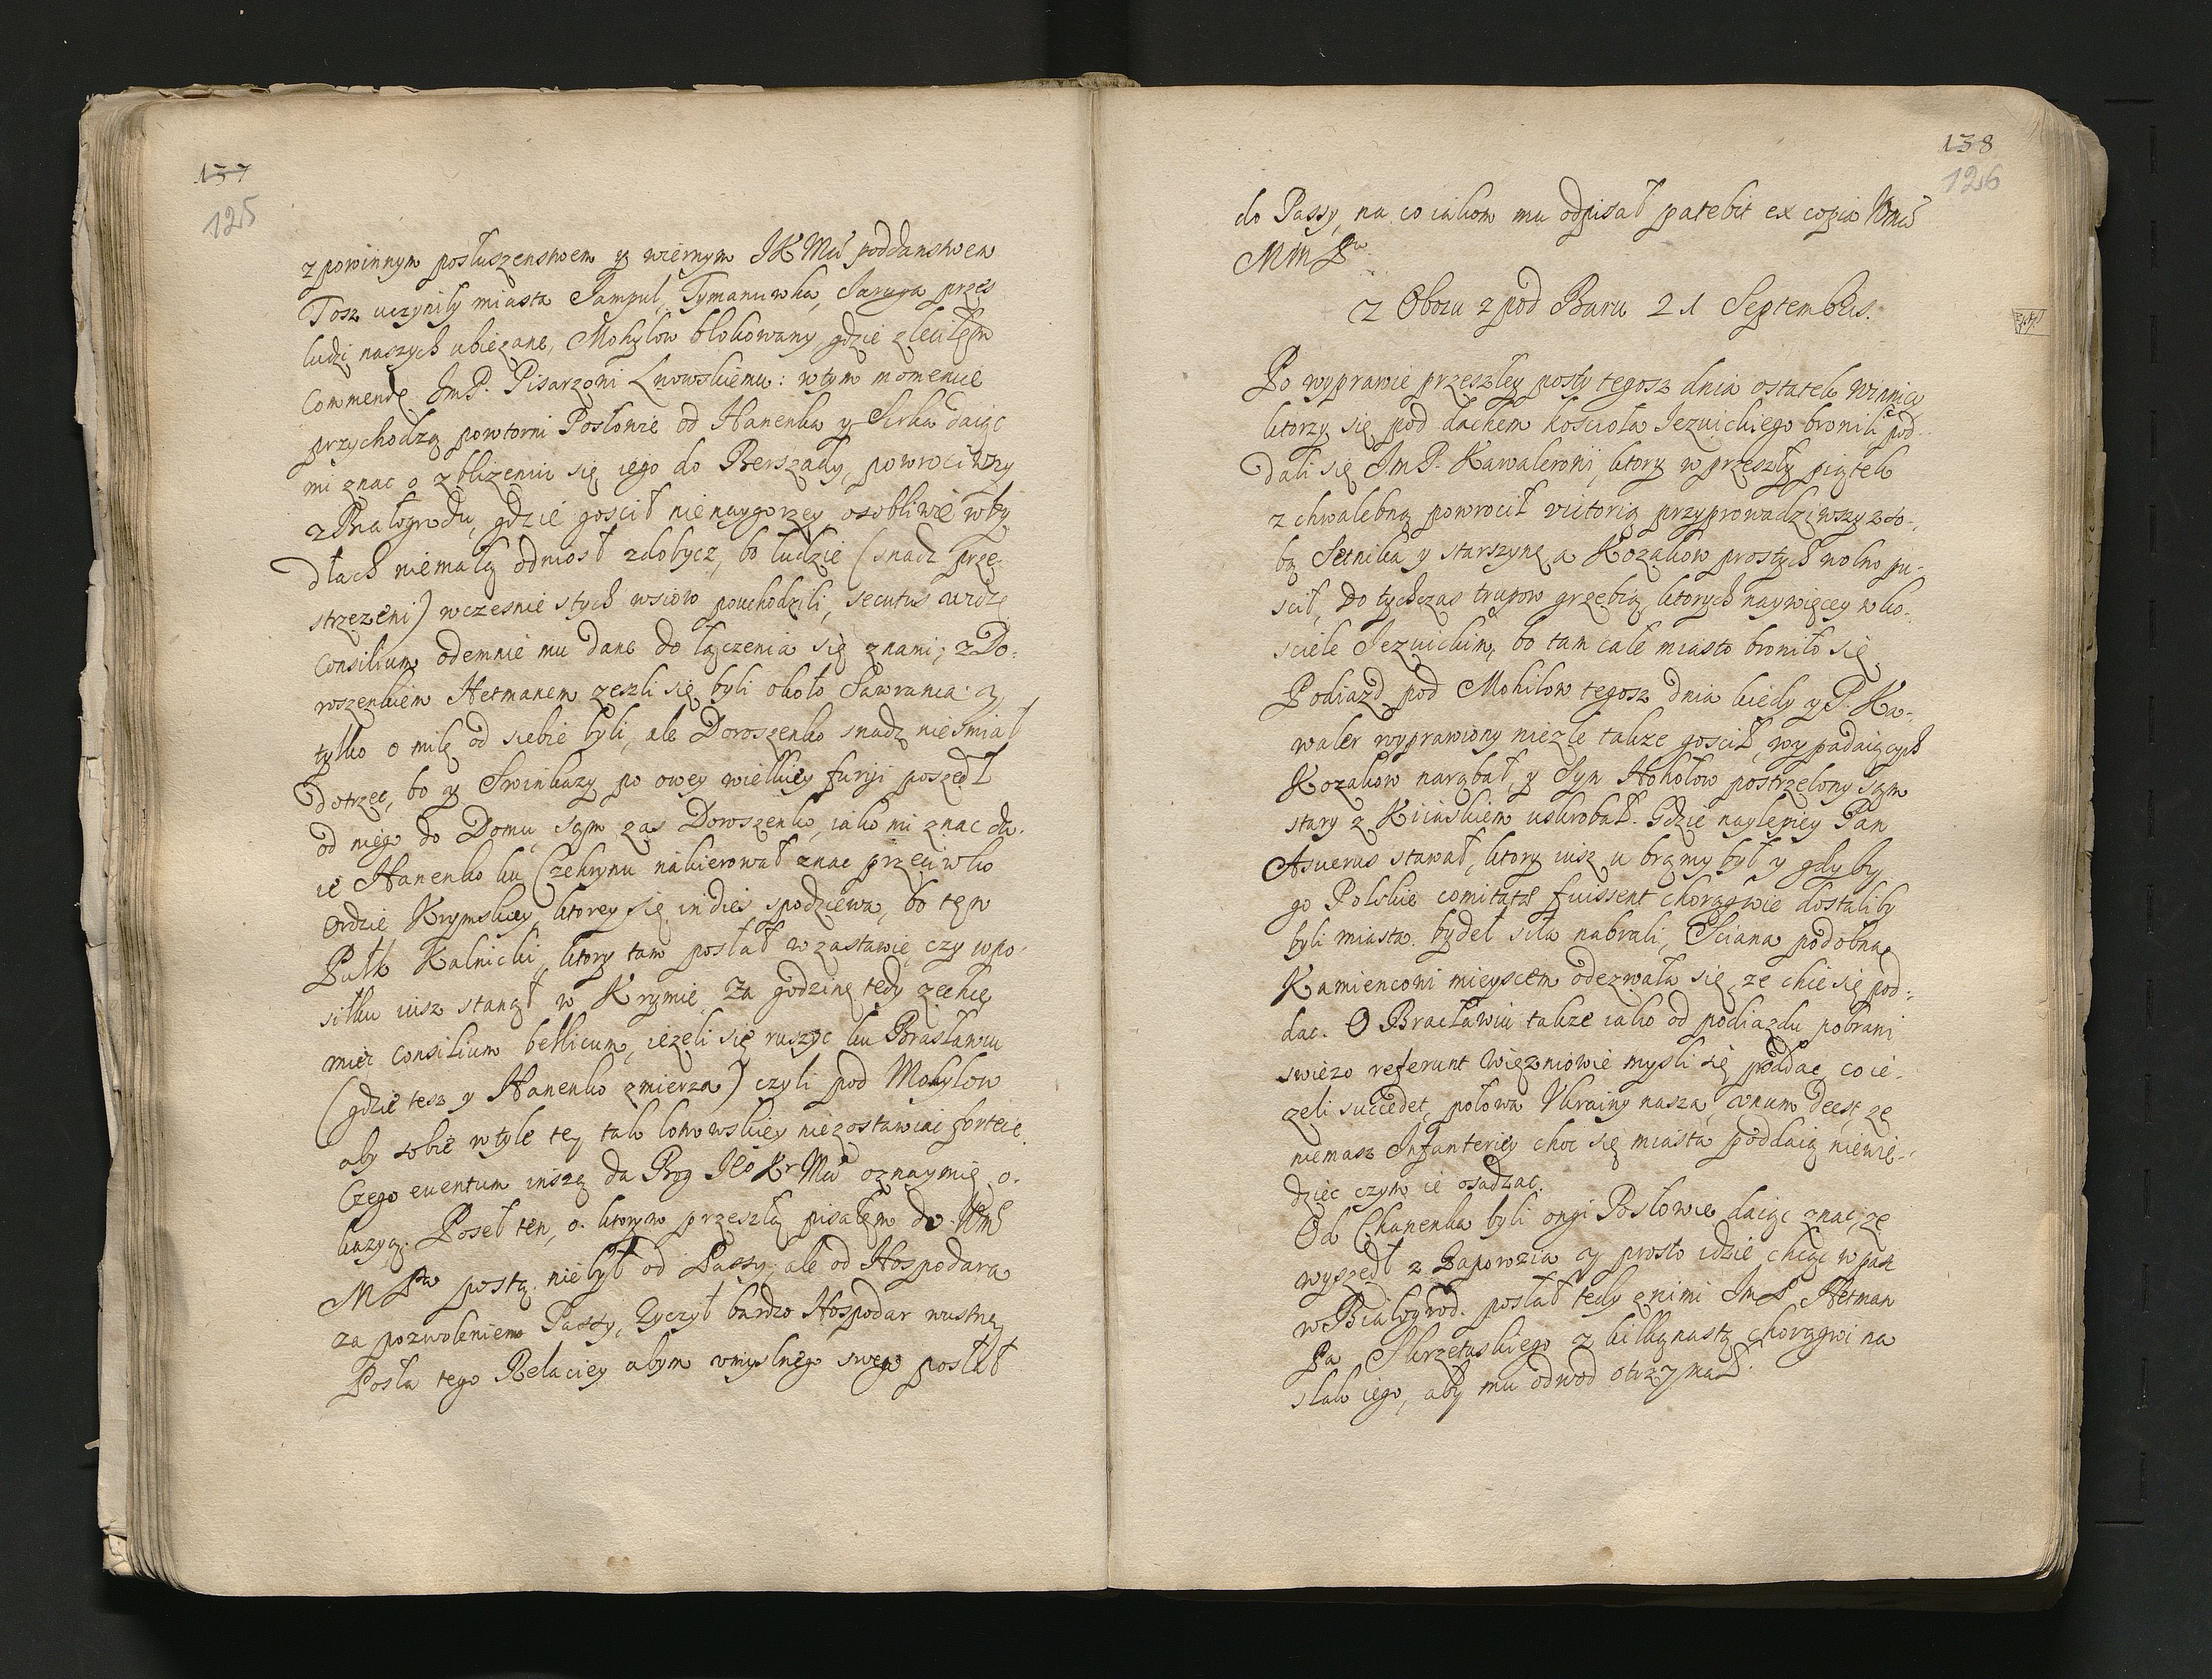 137
125
z powinnym posłuszenstwem y wiernym JKMci poddanstwem
Tosz uczyniły miasta Jampul, Tymanuwka, Jaruga przes
ludzi naszych ubiezane, Mohylow blokowany, gdzie zleciłem
Commendę ImP. Pisarzowi Lwowskiemu: w tym momencie
przychodzą powtorni Posłowie od Hanenka y Sirka daiąc
mi znac o zblizeniu się iego do Berszady, powrociwszy
z Białogrodu, gdzie goscił nienaygorzey osobliwie w by
dłach niemałą odniosł zdobycz, bo ludzie (snadz prze-
strzezeni) wczesnie s tych wsiow pouchodzili, secutus widzę
Consilium odemnie mu dane do łączenia się z nami; z Do-
roszenkiem Hetmanem zeszli się byli około Sawrania y
tylko o milę od siebie byli, ale Doroszenko snadz nie smiał
dotrzec, bo y Swinkazy po owey wielkiey furyi poszedł
od niego do Domu, sąm zas Doroszenko, iako mi znac da-
ie Hanenko ku Czehrynu nakierował znac przeciwko
Ordzie Krymskiey, ktorey się in dies spodziewa, bo tęn
Pułk Kalnicki, ktory tam posłał w zastawie, czy w po-
siłku iusz stanął w Krymie, za godzinę tedy zechcę
miec Consilium bellicum, iezeli się ruszyc ku Brasławiu
(gdzie tesz y Hanenko zmierza) czyli pod Mohylow
aby sobie w tyle tey tak łotrowskiey nie zostawiac fortece.
Czego euentum inszą da Bog Je° Kr Mci oznaymię o-
kazyą. Poseł ten, o ktorym przeszłą pisałęm do Wmć
M Pa pocztą nie był od Passy, ale od Hospodara
za pozwoleniem Passy, Zyczył bardzo Hospodar wustney
Posła tego Relaciey abym umyslnego swego posłał
138
126
do Passy, na co iakom mu odpisał patebit ex copia Wmć
MM Pu
z Obozu z pod Baru 21 Septembris.
Po wyprawie przeszłey posty tegosz dnia ostatek Winnicy
ktorzy się pod dachem koscioła Jezuickiego bronili pod-
dali się ImP. Kawalerowi, ktory w przeszły piątek
z chwalebną powrocił victorią przyprowadziwszy z so-
bą Setnika y starszynę a Kozakow prostych wolno pu-
scił, do tychczas trupow grzebią, ktorych naywięcey w ko-
sciele Jezuickim, bo tam całe miasto broniło się
Podiazd pod Mohilow tegosz dnia kiedy y P. Ka-
waler wyprawiony niezle takze goscił, wypadaiących
Kozakow narąbał, y Syn Hohołow postrzelony sąm
stary z Kiciuskiem uskrobał. Gdzie naylepiey Pan
Asuerus stawał, ktory iusz u brąmy był y gdyby
go Polskie comitatę fuissent chorągwie dostaliby
byli miasta. bydeł siła nabrali, Sciana podobnae
Kamiencowi mieyscem odezwała się, ze chce się pod-
dac. O Bracławiu takze iako od podiazdu pobrani
swiezo referunt więzniowie mysli się poddac, co ie-
zeli succedet, połowa Ukrainy nasza, vnum deest, ze
niemasz Infanteriey choc się miasta poddaią niewie-
dziec czym ie osadzac.
Od Chanenka byli ongi Posłowie daiąc znac, ze
wyszedł z Zaporozia y prosto idzie chcąc wpasc
w Białogrod. posłał tedy z nimi ImP Hetman
Pa Skrzetuskiego z kilkąnastą chorągwi na
slak iego, aby mu odwod otrzymał.